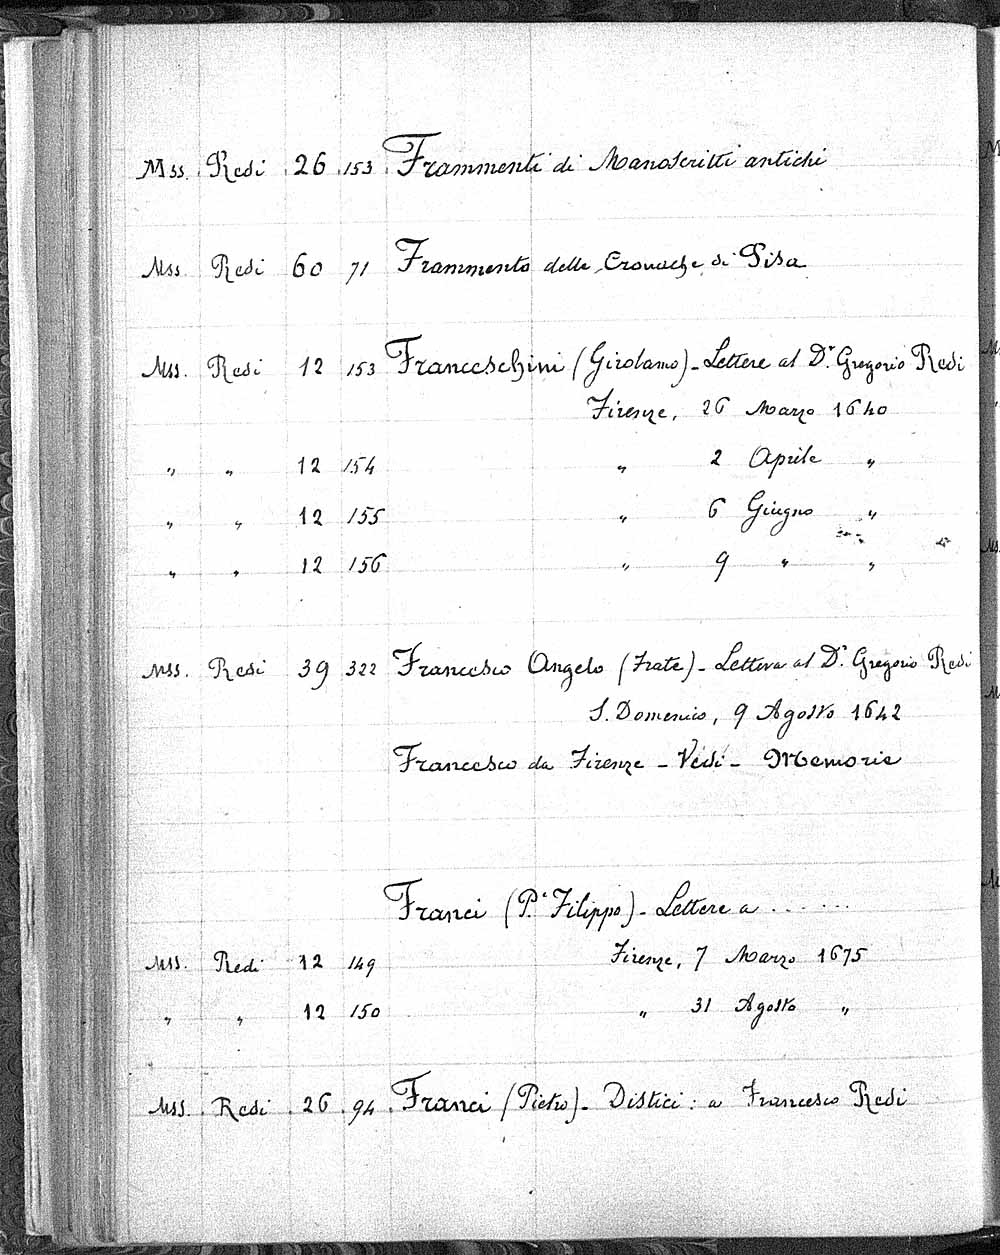 Mss. Redi 26 153 Frammenti di Manoscritti antichi
Mss. Redi 60 71 Frammento delle Cronache di Pisa
Mss. Redi 12 153 Franceschini (Girolamo) - Lettere al Dr. Gregorio Redi
Firenze, 26 Marzo 1640
" " 12 154 " 2 Aprile "
" " 12 155 " 6 Giugno "
" " 12 156 " 9 " "
Mss. Redi 39 322 Francesco Angelo (Frate) - Lettera al Dr. Gregorio Redi
S. Domenico, 9 Agosto 1642
Francesco da Firenze - Vedi - Memorie
Franci (P.e Filippo) - Lettere a ......
Mss. Redi 12 149 Firenze, 7 Marzo 1675
" " 12 150 " 31 Agosto "
Mss. Redi 26 94 Franci (Pietro) - Distici: a Francesco Redi